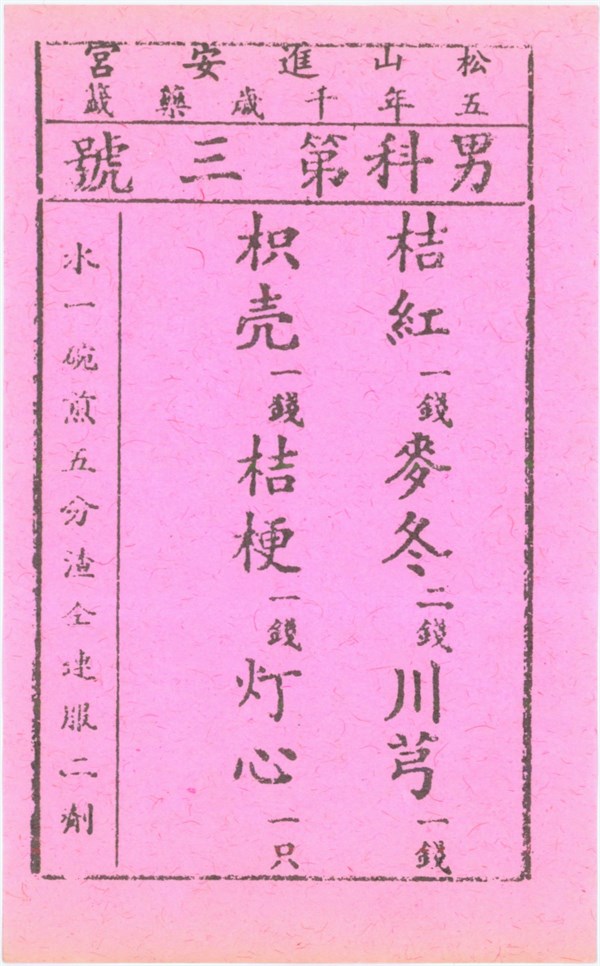 松山進安宮
五年千歲藥籤
男科第三號
桔紅一錢麥冬二錢川芎一錢
枳壳一錢桔梗一錢灯心一只
水一碗煎五分渣仝連服二劑